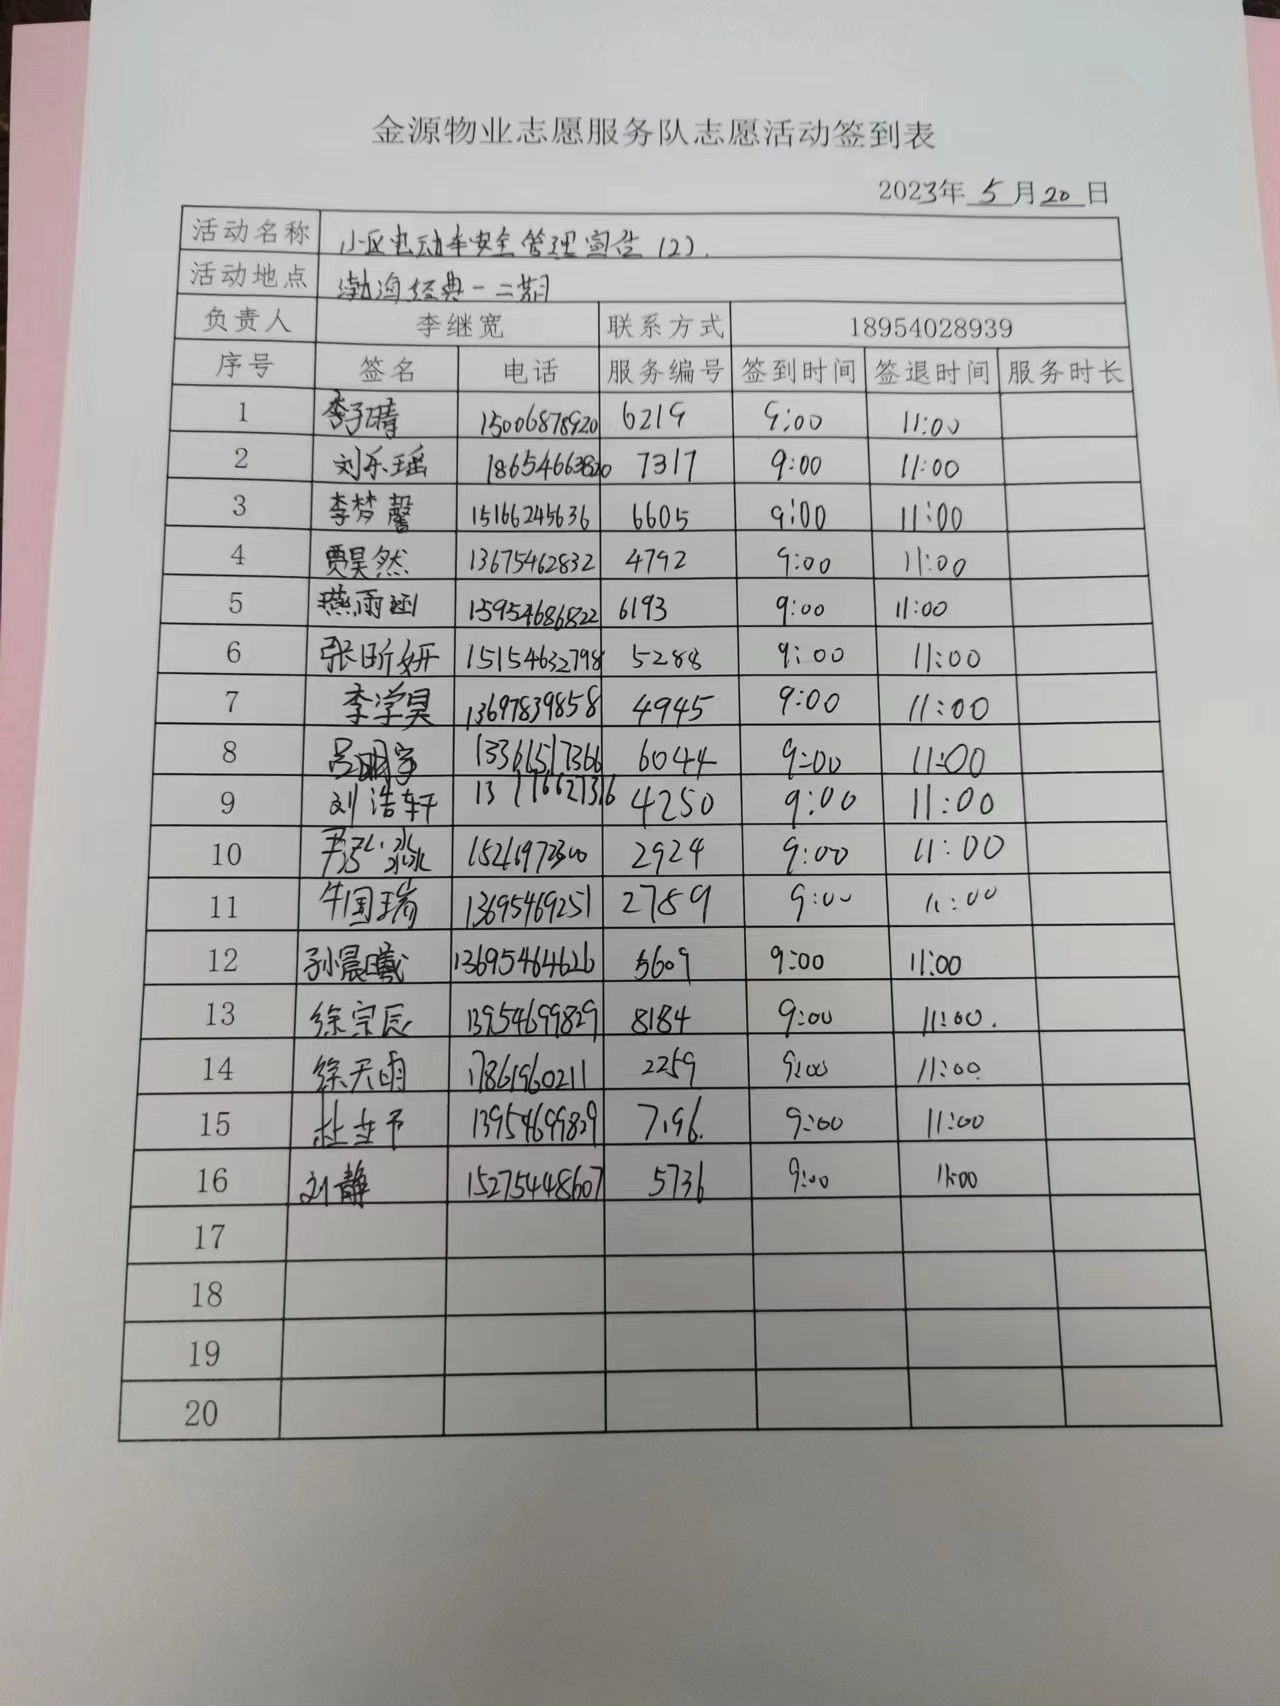 金源物业志愿服务队志愿活动签到表
2023年 5 月 20 日
活动名称 小区电动车安全管理宣传（2）.
活动地点 渤海经典一二期
负责人 李继宽 联系方式 18954028939
序号 签名 电话 服务编号 签到时间 签退时间 服务时长
1 李子晴 15006878920 6219 9:00 11:00
2 刘乐瑶 18654663820 7317 9:00 11:00
3 李梦馨 15166245636 6605 9:00 11:00
4 贾昊然 13675462832 4792 9:00 11:00
5 燕雨涵 15954686822 6193 9:00 11:00
6 张昕妍 15154632798 5288 9:00 11:00
7 李学昊 13697839858 4945 9:00 11:00
8 吕明宇 13361517366 6044 9:00 11:00
9 刘浩轩 4250 9:00 11:00
10 2924 9:00 11:00
11 牛国瑞 13695469251 2789 9:00 11:00
12 孙晨曦 13695464626 5609 9:00 11:00
13 徐宗辰 13954699829 8184 9:00 11:00.
14 徐天雨 17861960211 2259 9:00 11:00
15 13954699829 7196. 9:00 11:00
16 刘静 15275448607 5736 9:00 11:00
17
18
19
20